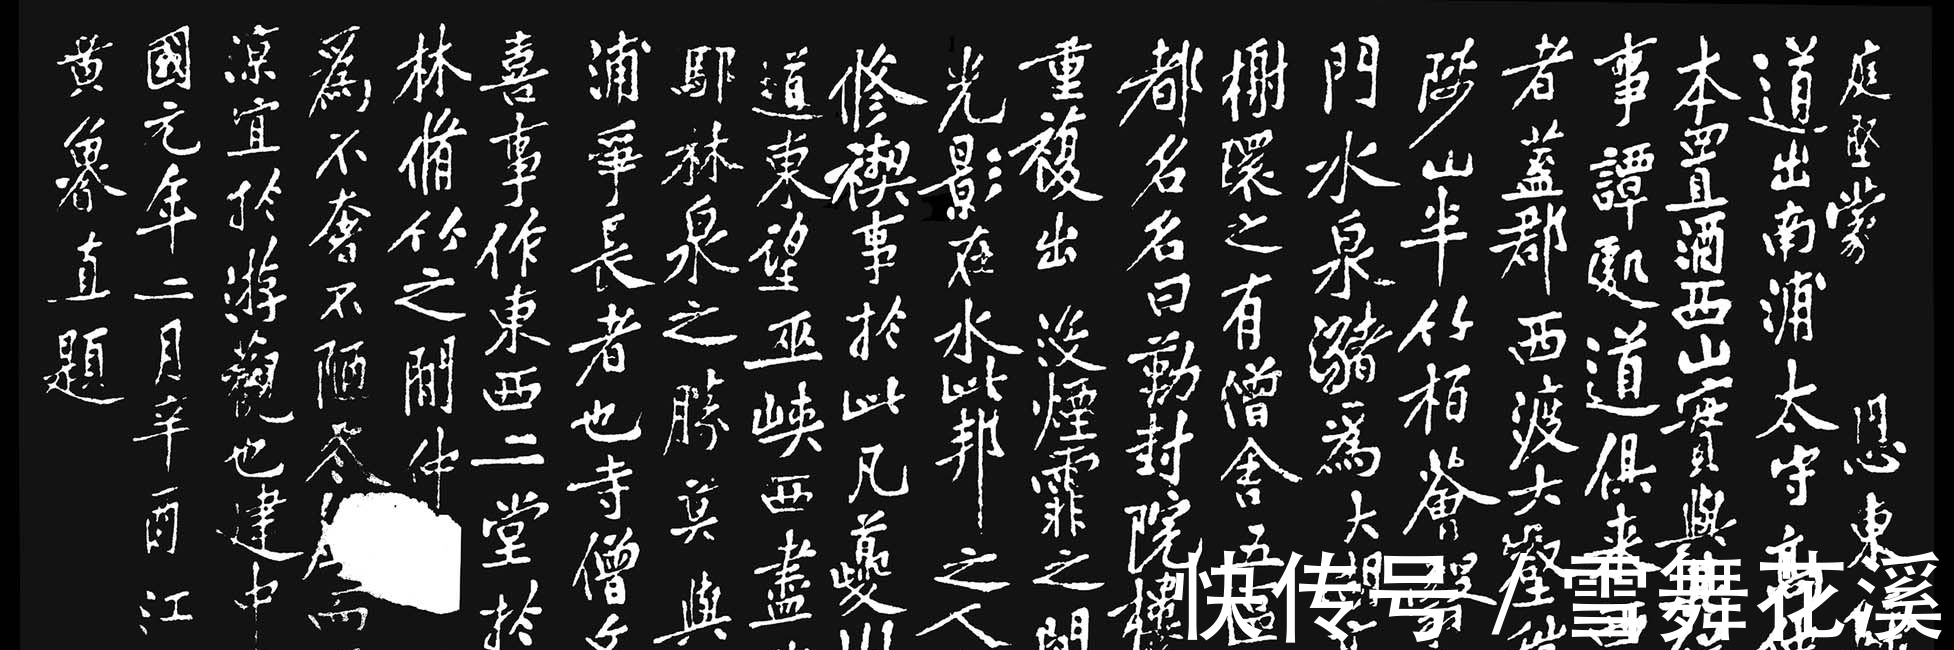 庭堅蒙 恩東
道出南浦太守高
本置酒西山實與
事譚處道俱來
者蓋郡西渡大壑
陟山半竹柏薈翳
門水泉瀦爲大
榭環之有僧舍五區
都名名曰勤封院樓
重複出没煙霏之間
光影在水此邦之人
修禊事於此凡夔州
道東望巫峽西盡
鄢林泉之勝莫與
浦爭長者也寺僧文
喜事作東西二堂於
林脩竹之間仲
爲不奢不陋冬 而
涼宜於游觀也建中
國元年二月辛酉江
黄魯直題
快传号/雪舞花溪